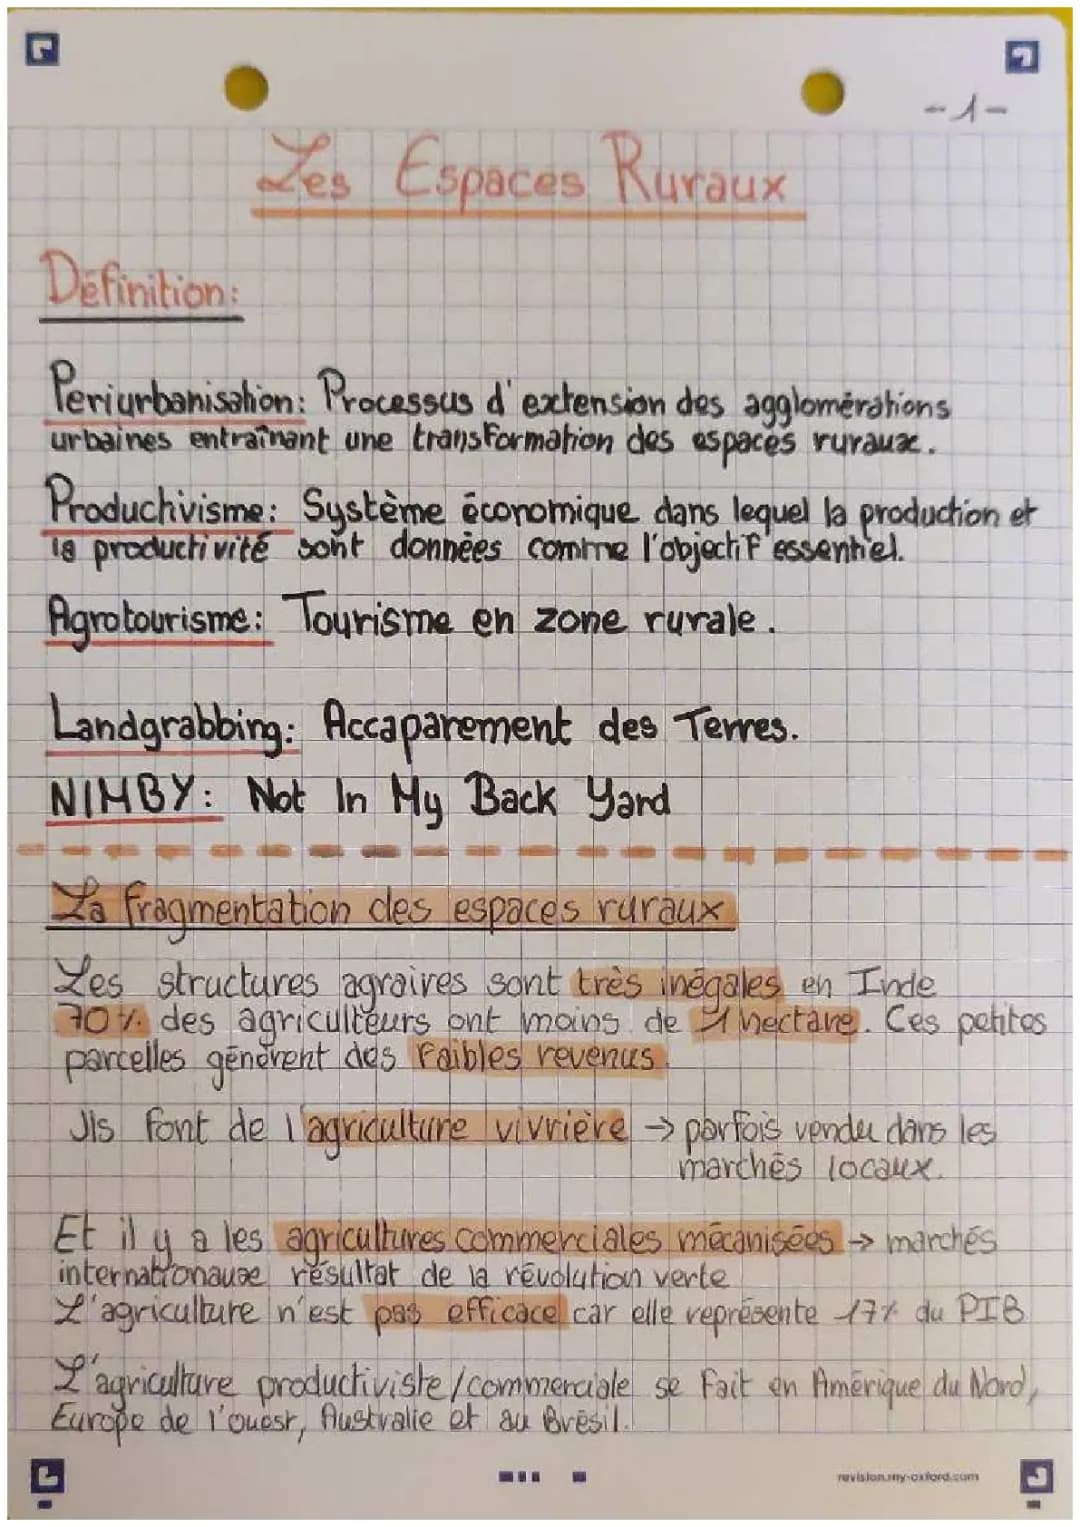 -1-
Les Espaces Ruraux
Définition:
Periurbanisation: Processus d'extension des agglomérations
urbaines entraînant une transformation des espaces ruraux.
Productivisme: Système économique dans lequel la production et
la productivité sont données comme l'objectif essentiel.
Agrotourisme: Tourisme en zone rurale.
Landgrabbing: Accaparement des Terres.
NIMBY: Not In My Back Yard
La fragmentation des espaces ruraux
Les structures agraires sont très inégales en Inde
70% des agriculteurs ont moins de 1 hectare. Ces petites
parcelles génèrent des faibles revenus.
Ils font de l'agriculture vivrière → parfois vendu dans les
marchés locaux.
Et il y a les agricultures commerciales mécanisées → marchés
internationaux résultat de la révolution verte
L'agriculture n'est pas efficace car elle représente 17% du PIB
L'agriculture productiviste/commerciale se fait en Amérique du Nord,
Europe de l'ouest, Australie et au Brésil.
revision.my-oxford.com